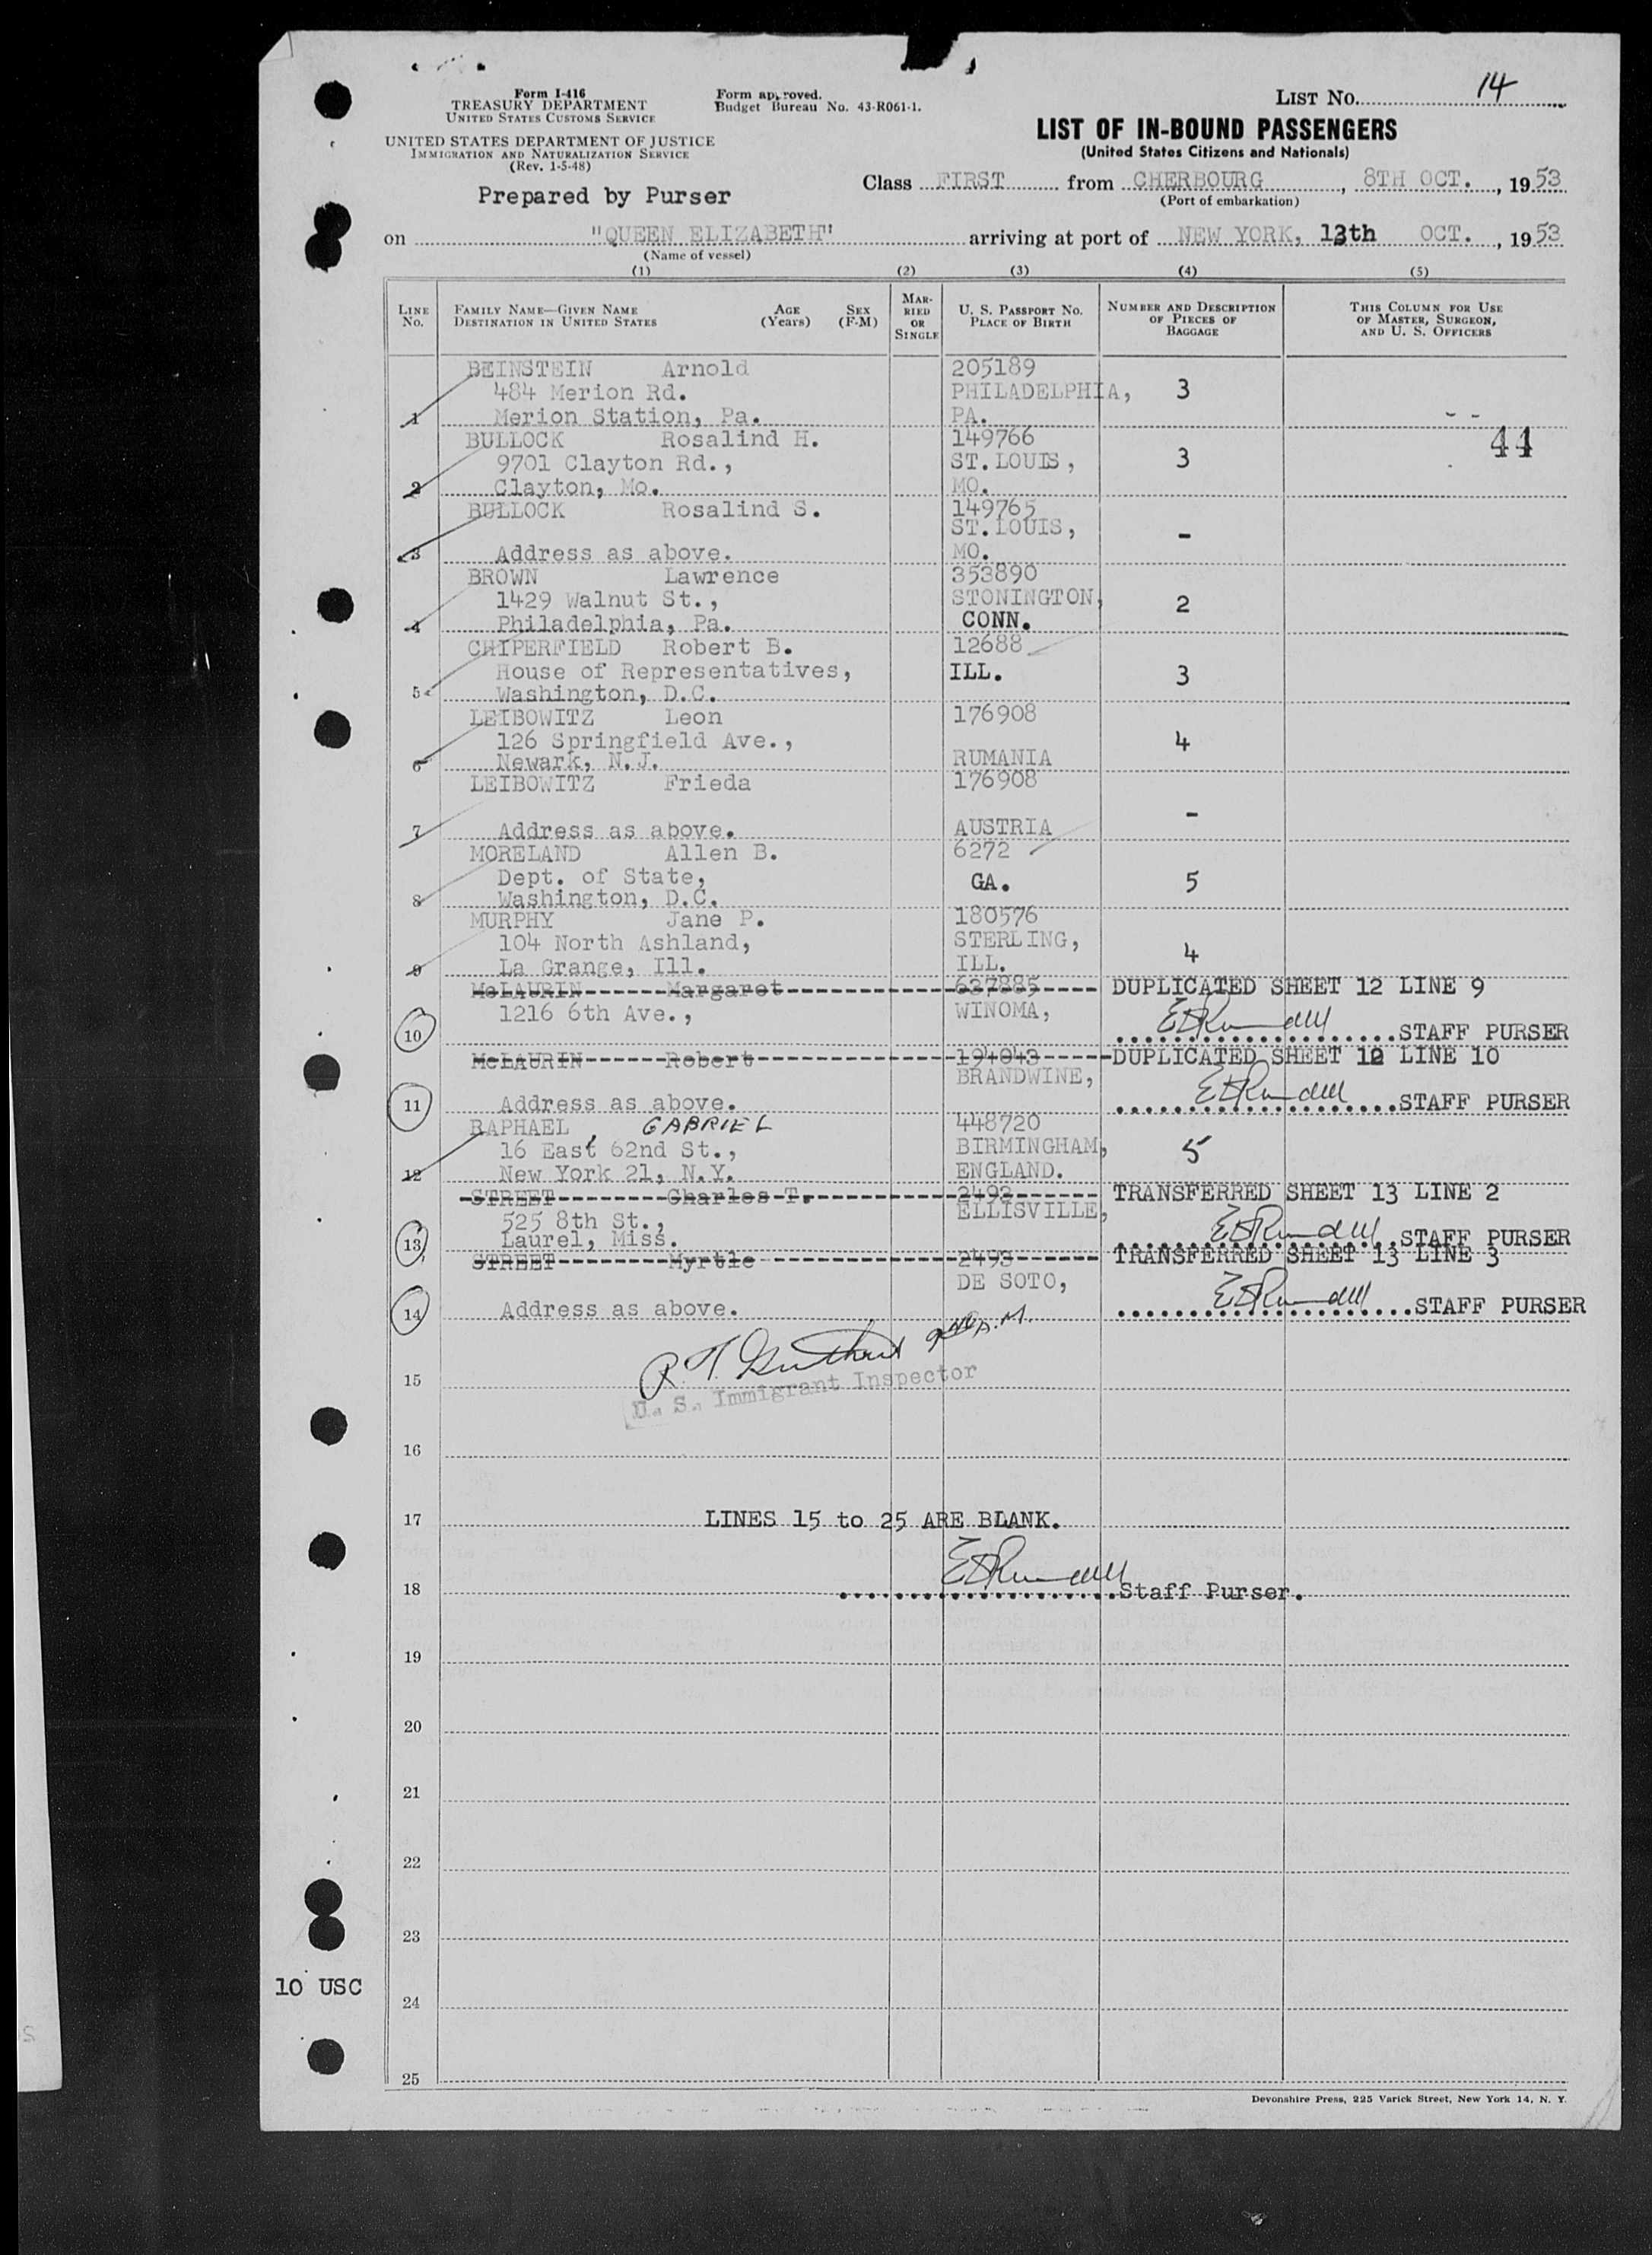 Form I-416
TREASURY DEPARTMENT
UNITED STATES CUSTOMS SERVICE
UNITED STATES DEPARTMENT OF JUSTICE
IMMIGRATION AND NATURALIZATION SERVICE
(Rev. 1-5-48)
Prepared by Purser
Form approved.
Budget Bureau No. 43-R061-1.
LIST No. 14
LIST OF IN-BOUND PASSENGERS
(United States Citizens and Nationals)
Class FIRST from CHERBOURG, 8TH OCT., 1953
(Port of embarkation)
on "QUEEN ELIZABETH" arriving at port of NEW YORK, 13th OCT., 1953
(Name of vessel)
(1) (2) (3) (4) (5)
LINE No.
FAMILY NAME—GIVEN NAME
DESTINATION IN UNITED STATES
AGE (Years)
SEX (F-M)
MARRIED OR SINGLE
U. S. PASSPORT NO.
PLACE OF BIRTH
NUMBER AND DESCRIPTION OF PIECES OF BAGGAGE
THIS COLUMN FOR USE OF MASTER, SURGEON, AND U. S. OFFICERS
BEINSTEIN Arnold 205189
484 Merion Rd. PHILADELPHIA, 3
1 Merion Station, Pa. PA.
44
BULLOCK Rosalind H. 149766
9701 Clayton Rd., ST.LOUIS, 3
2 Clayton, Mo. MO.
BULLOCK Rosalind S. 149765
ST.LOUIS, -
3 Address as above. MO.
BROWN Lawrence 353890
1429 Walnut St., STONINGTON, 2
4 Philadelphia, Pa. CONN.
CHIPERFIELD Robert B. 12688
House of Representatives, ILL. 3
5 Washington, D.C.
LEIBOWITZ Leon 176908
126 Springfield Ave., 4
6 Newark, N.J. RUMANIA
LEIBOWITZ Frieda 176908
-
7 Address as above. AUSTRIA
MORELAND Allen B. 6272
Dept. of State, GA. 5
8 Washington, D.C.
MURPHY Jane P. 180576
104 North Ashland, STERLING, 4
9 La Grange, Ill. ILL.
McLAURIN Margaret 627885 DUPLICATED SHEET 12 LINE 9
1216 6th Ave., WINOMA,
10 STAFF PURSER
McLAURIN Robert 194043 DUPLICATED SHEET 12 LINE 10
BRANDWINE,
11 Address as above. STAFF PURSER
RAPHAEL, GABRIEL 448720
16 East 62nd St., BIRMINGHAM, 5
12 New York 21, N.Y. ENGLAND.
STREET Charles T. 2492 TRANSFERRED SHEET 13 LINE 2
525 8th St., ELLISVILLE,
13 Laurel, Miss. STAFF PURSER
STREET Myrtle 2493 TRANSFERRED SHEET 13 LINE 3
DE SOTO,
14 Address as above. STAFF PURSER
15
U. S. Immigrant Inspector
16
17 LINES 15 to 25 ARE BLANK.
18 Staff Purser.
19
20
21
22
23
10 USC
24
25
Devonshire Press, 225 Varick Street, New York 14, N. Y.